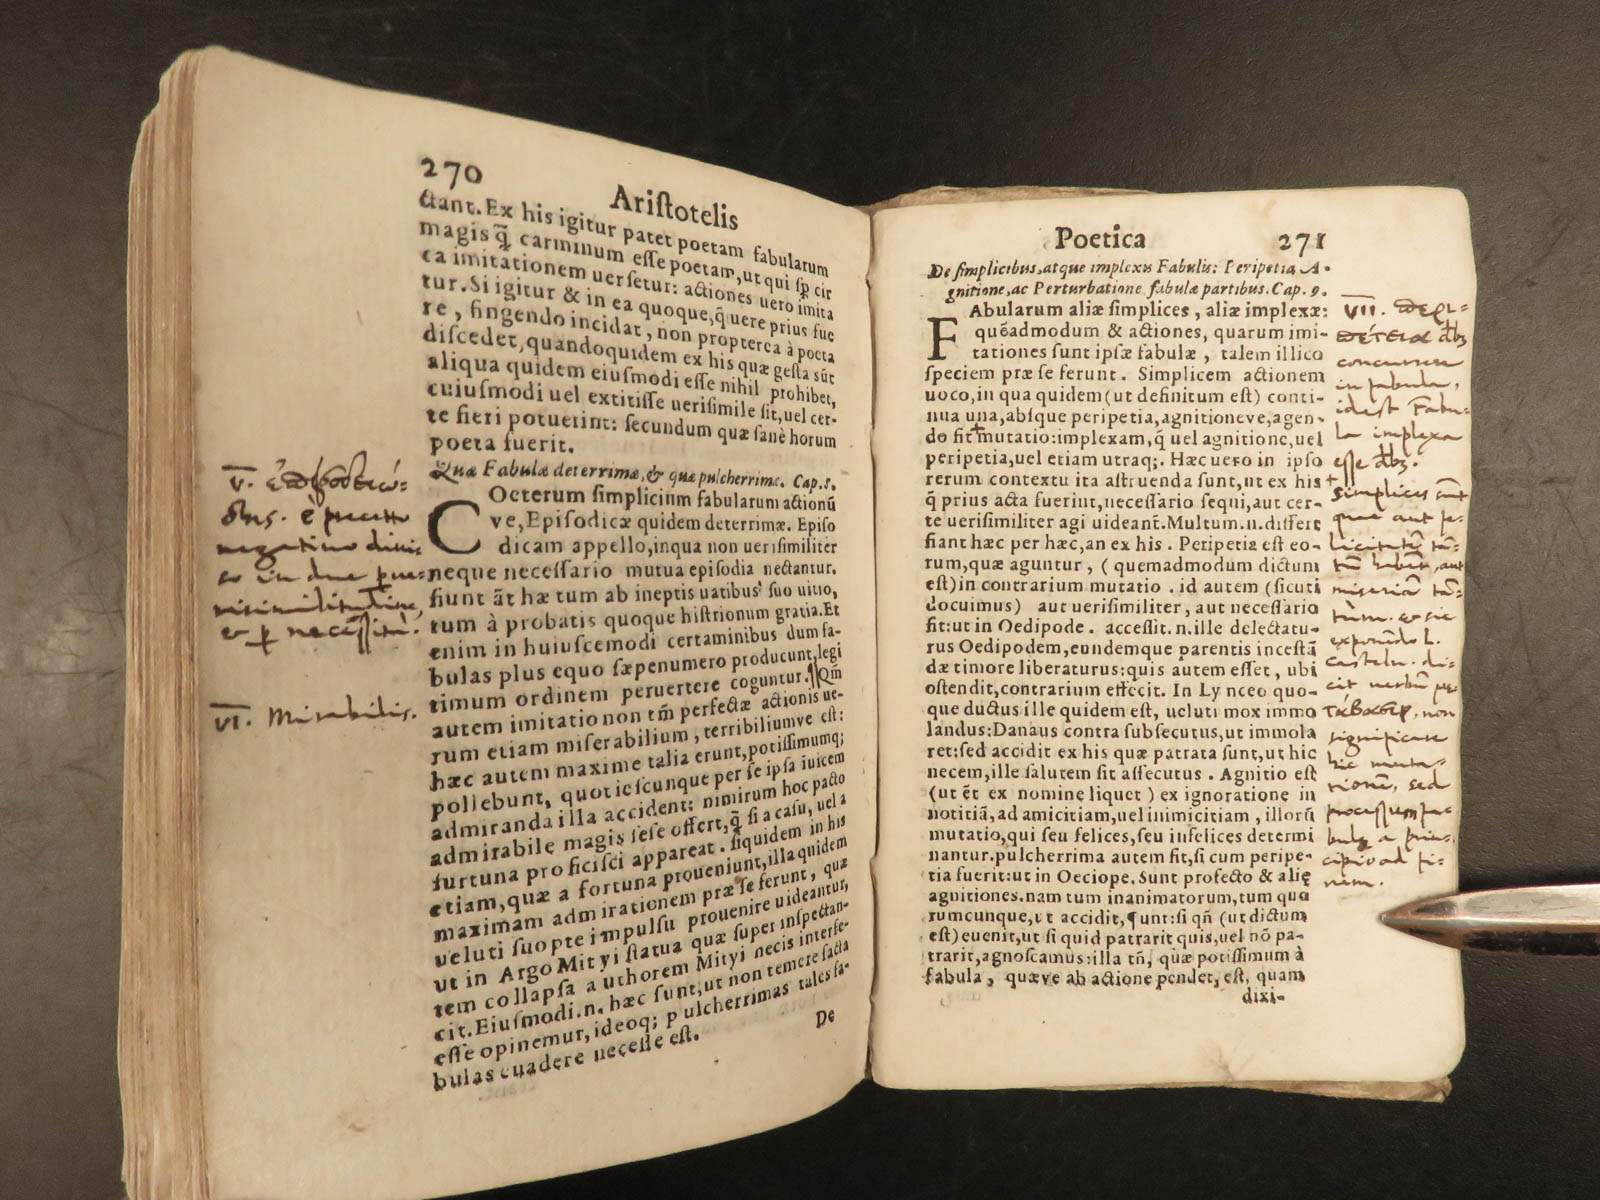 270
Ariſtotelis
ctant. Ex his igitur patet poetam fabularum
magis q̃ carminum eſſe poetam, ut qui ꝓ cir
ca imitationem uerſetur: actiones uero imita
tur. Si igitur & in ea quoque, q̃ uere prius fue
re, fingendo incidat, non propterea à poeta
diſcedet, quandoquidem ex his quæ geſta sũt
aliqua quidem eiuſmodi eſſe nihil prohibet,
cuiuſmodi uel extitiſſe ueriſimile ſit, uel cer-
te fieri potuerint: ſecundum quæ ſanè horum
poeta fuerit.
Quæ Fabulæ deterrimæ, & quæ pulcherrimæ. Cap.8.
COeterum ſimplicium fabularum actionũ
ve, Epiſodicæ quidem deterrimæ. Epiſo
dicam appello, inqua non ueriſimiliter
neque neceſſario mutua epiſodia nectantur.
fiunt ãt hæ tum ab ineptis uatibus ſuo uitio,
tum à probatis quoque hiſtrionum gratia. Et
enim in huiuſcemodi certaminibus dum fa-
bulas plus equo ſæpenumero producunt, legi
timum ordinem peruertere coguntur. Qm̃
autem imitatio non tm̃ perfectæ actionis ue-
rum etiam miſerabilium, terribiliumve eſt:
hæc autem maxime talia erunt, potiſſimumq;
pollebunt, quotieſcunque per ſe ipſa iuicem
admiranda illa accident: nimirum hoc pacto
admirabile magis ſeſe offert, q̃ ſi a caſu, uel a
furtuna proficiſci appareat. ſiquidem in his
etiam, quæ a fortuna proueniunt, illa quidem
maximam admirationem præ ſe ferunt, quæ
ueluti ſuopte impulſu prouenire uideantur,
ut in Argo Mityi ſtatua quæ ſuper inſpectan-
tem collapſa authorem Mityi necis interfe-
cit. Eiuſmodi.n. hæc ſunt, ut non temere facta
eſſe opinemur, ideoq; pulcherrimas tales fa-
bulas cuadere neceſſe eſt.
De
V.
negatiuo diui-
so in due
& neceſſità.
VI. Mirabilis.
Poetica 271
De ſimplicibus, atque implexis Fabulis: Peripetia A-
gnitione, ac Perturbatione fabulæ partibus. Cap. 9.
FAbularum aliæ ſimplices, aliæ implexæ:
quẽadmodum & actiones, quarum imi-
tationes ſunt ipſæ fabulæ, talem illico
ſpeciem præ ſe ferunt. Simplicem actionem
uoco, in qua quidem (ut definitum eſt) conti-
nua una, abſque peripetia, agnitioneve, agen-
do fit mutatio: implexam, q̃ uel agnitione, uel
peripetia, uel etiam utraq;. Hæc uero in ipſo
rerum contextu ita aſtruenda ſunt, ut ex his
q̃ prius acta fuerint, neceſſario ſequi, aut cer-
te ueriſimiliter agi uideanť. Multum.n. differt
fiant hæc per hæc, an ex his. Peripetia eſt eo-
rum, quæ aguntur, (quemadmodum dictum
eſt) in contrarium mutatio. id autem (ſicuti
docuimus) aut ueriſimiliter, aut neceſſario
fit: ut in Oedipode. acceſſit.n. ille delectatu-
rus Oedipodem, eundemque parentis inceſtã
dæ timore liberaturus: quis autem eſſet, ubi
oſtendit, contrarium effecit. In Lynceo quo-
que ductus ille quidem eſt, ueluti mox immo
landus: Danaus contra ſubſecutus, ut immola
ret: ſed accidit ex his quæ patrata ſunt, ut hic
necem, ille ſalutem ſit aſſecutus. Agnitio eſt
(ut ẽt ex nomine liquet) ex ignoratione in
notitiã, ad amicitiam, uel inimicitiam, illorũ
mutatio, qui ſeu felices, ſeu infelices determi
nantur. pulcherrima autem fit, ſi cum peripe-
tia fuerit: ut in Oeciope. Sunt profecto & alię
agnitiones. nam tum inanimatorum, tum quo
rumcunque, ut accidit, ſunt: ſi qñ (ut dictum
eſt) euenit, ut ſi quid patrarit quis, uel nõ pa-
trarit, agnoſcamus: illa tñ, quæ potiſſimum à
fabula, quæve ab actione pendet, eſt, quam
dixi-
VII. περι-
πέτεια
concurrere
in fabula,
idest Fabu-
la implexa
esse
+ simplices sunt
quae aut fe-
licitatẽ tã-
tũ habẽt, aut
miseriã tã-
tùm. & sic
exponẽdo L.
Castelu. di-
cit uerbũ με-
ταβασις, non
significare
hic muta-
tionẽ, sed
processum fa-
bulę a prin-
cipio ad fi-
nem.